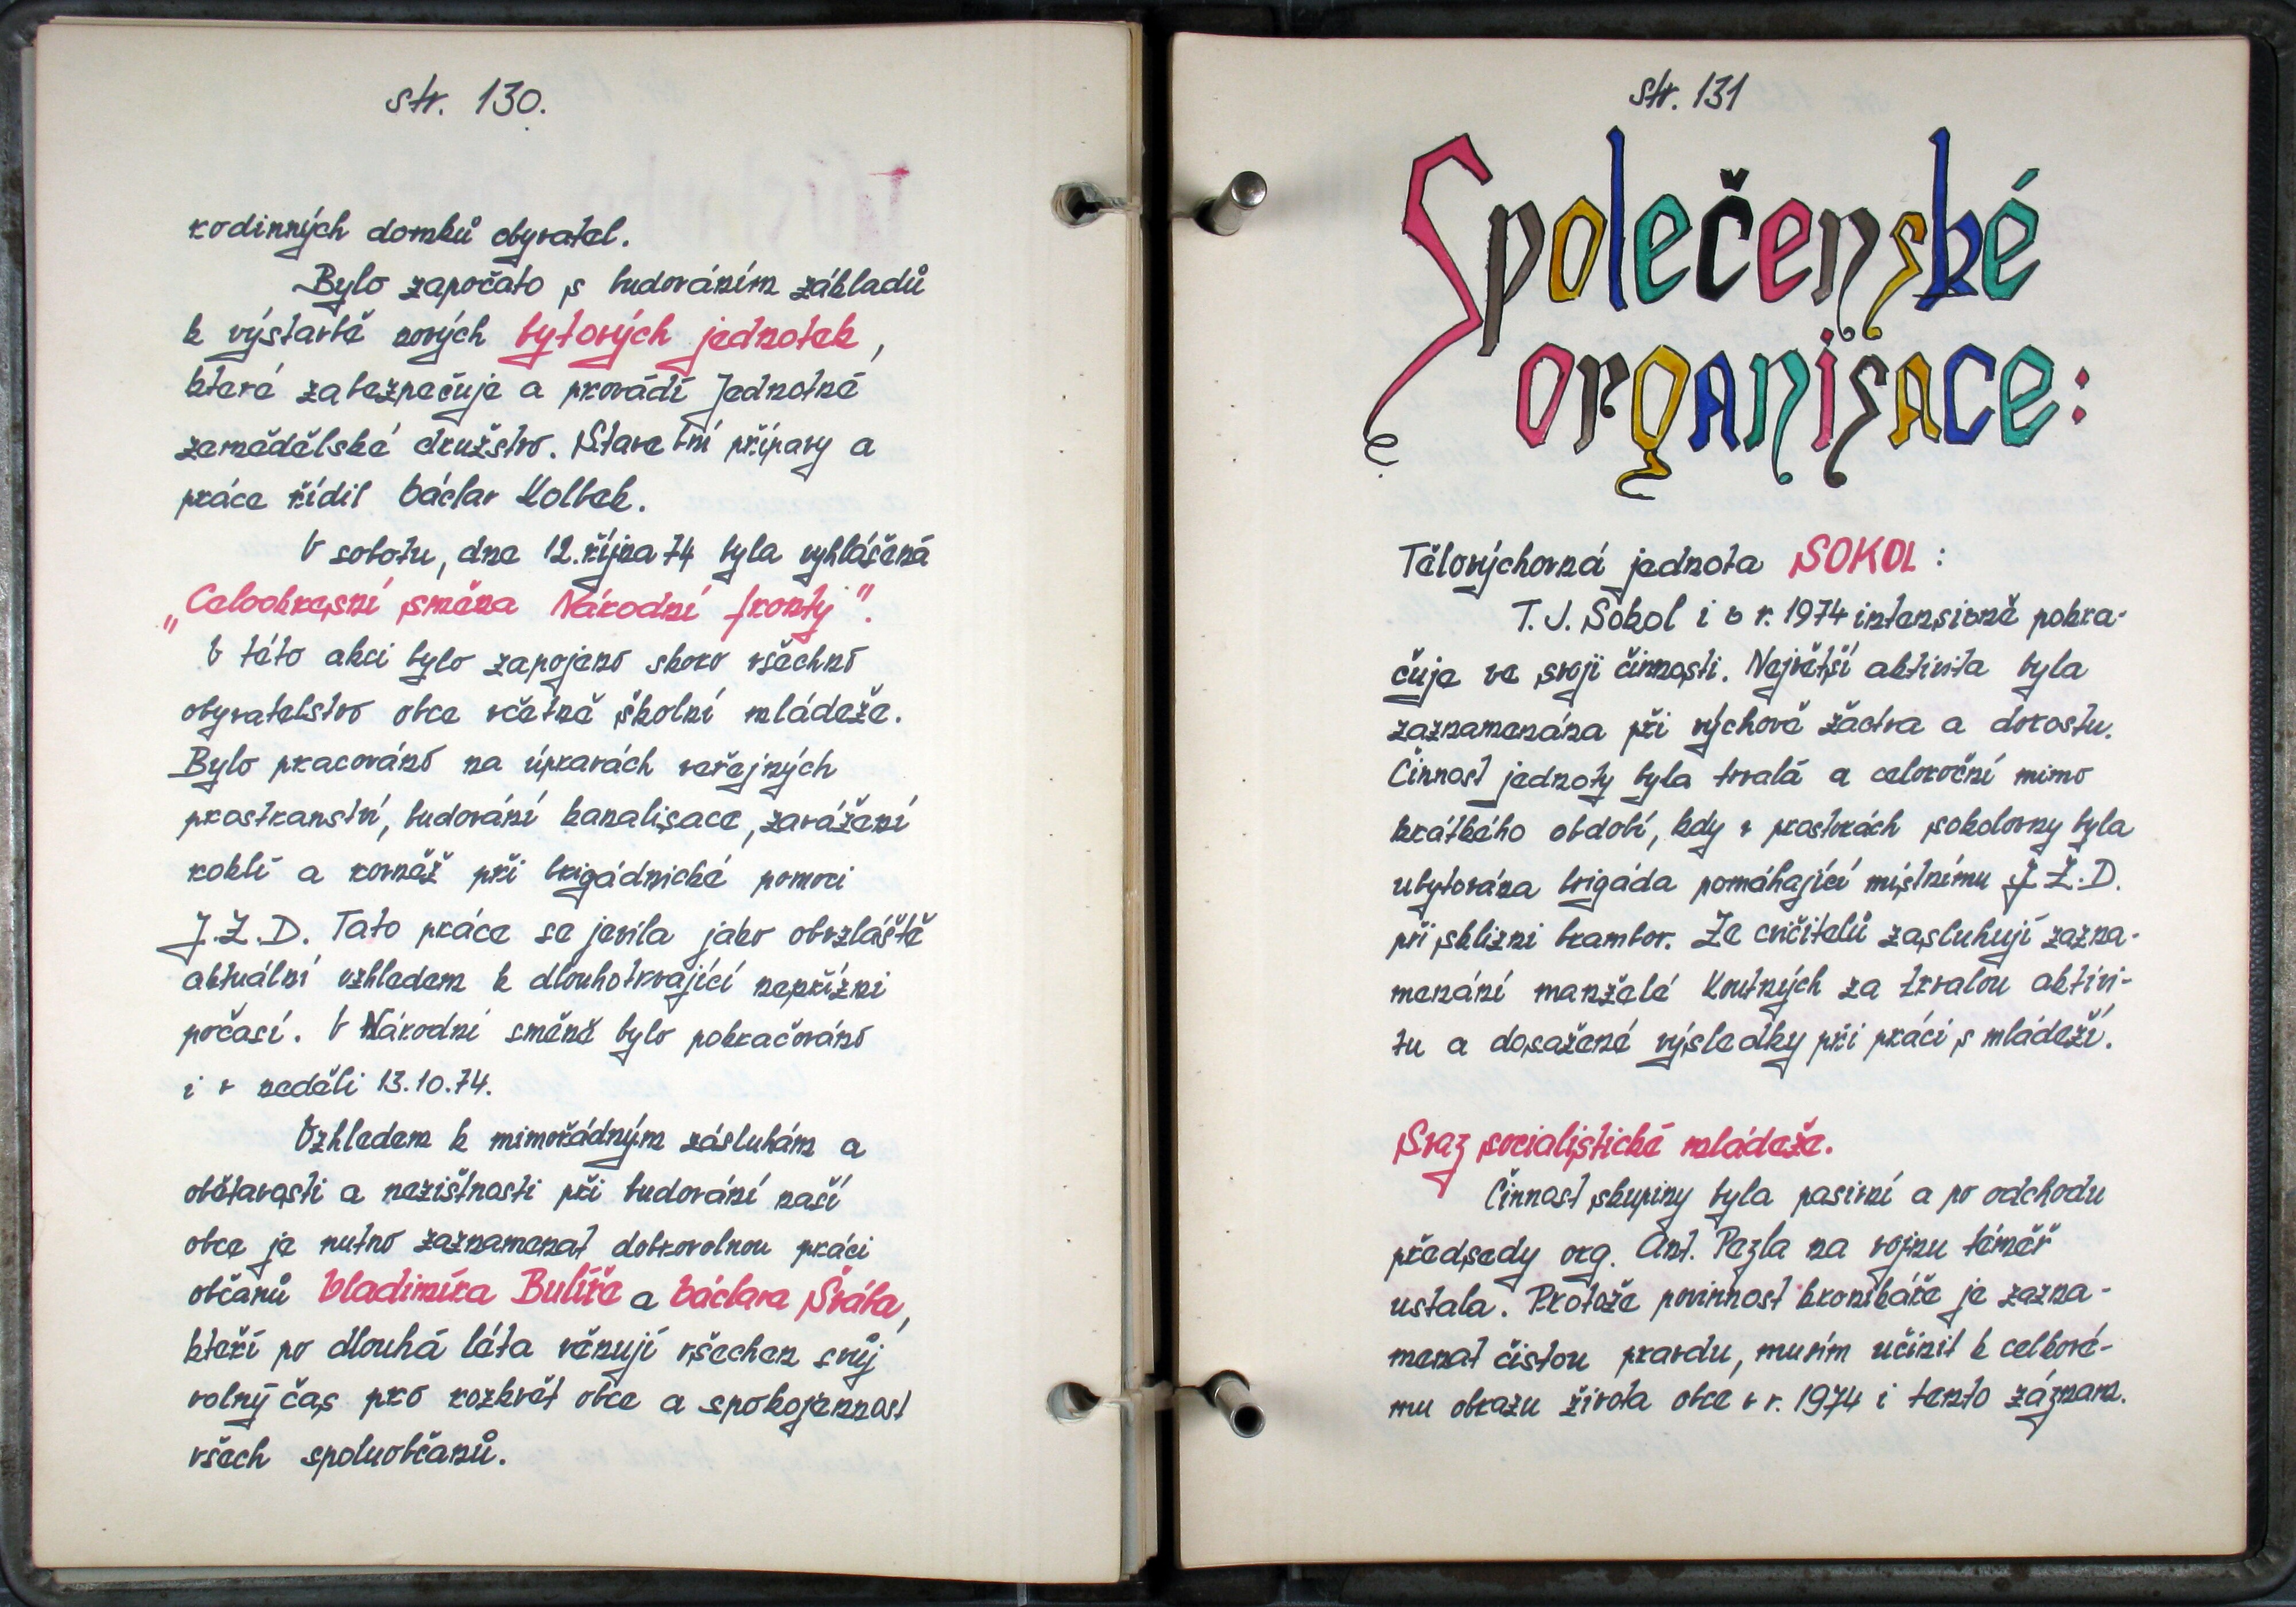 str. 130.
rodinných domků obyvatel.
Bylo započato s budováním základů
k výstavbě nových bytových jednotek,
které zabezpečuje a provádí Jednotné
zemědělské družstvo. Stavební přípravy a
práce řídil Václav Kolbek.
V sobotu, dne 12. října 74 byla vyhlášená
„Celookresní směna Národní fronty".
V této akci bylo zapojeno skoro všechno
obyvatelstvo obce včetně školní mládeže.
Bylo pracováno na úpravách veřejných
prostranství, budování kanalisace, zavážení
roklí a rovněž při brigádnické pomoci
J.Z.D. Tato práce se jevila jako obvzláště
aktuální vzhledem k dlouhotrvající nepřízni
počasí. V Národní směně bylo pokračováno
i v neděli 13.10.74.
Vzhledem k mimořádným zásluhám a
obětavosti a nezištnosti při budování naší
obce je nutno zaznamenat dobrovolnou práci
občanů Vladimíra Bulíře a Václava Švába,
kteří po dlouhá léta věnují všechen svůj
volný čas pro rozkvět obce a spokojennost
všech spoluobčanů.
str. 131
Společenské
organisace:
Tělovýchovná jednota SOKOL:
T. J. Sokol i v r. 1974 intensivně pokra-
čuje ve svoji činnosti. Největší aktivita byla
zaznamenána při výchově žactva a dorostu.
Činnost jednoty byla trvalá a celoroční mimo
krátkého období, kdy v prostorách sokolovny byla
ubytována brigáda pomáhající místnímu J.Z.D.
při sklizni brambor. Ze cvičitelů zasluhují zazna-
menání manželé Koutných za trvalou aktivi-
tu a dosažené výsledky při práci s mládeží.
Svaz socialistické mládeže.
Činnost skupiny byla pasivní a po odchodu
předsedy org. Ant. Pezla na vojnu téměř
ustala. Protože povinnost kronikáře je zazna-
menat čistou pravdu, musím učinit k celkové-
mu obrazu života obce v r. 1974 i tento záznam.